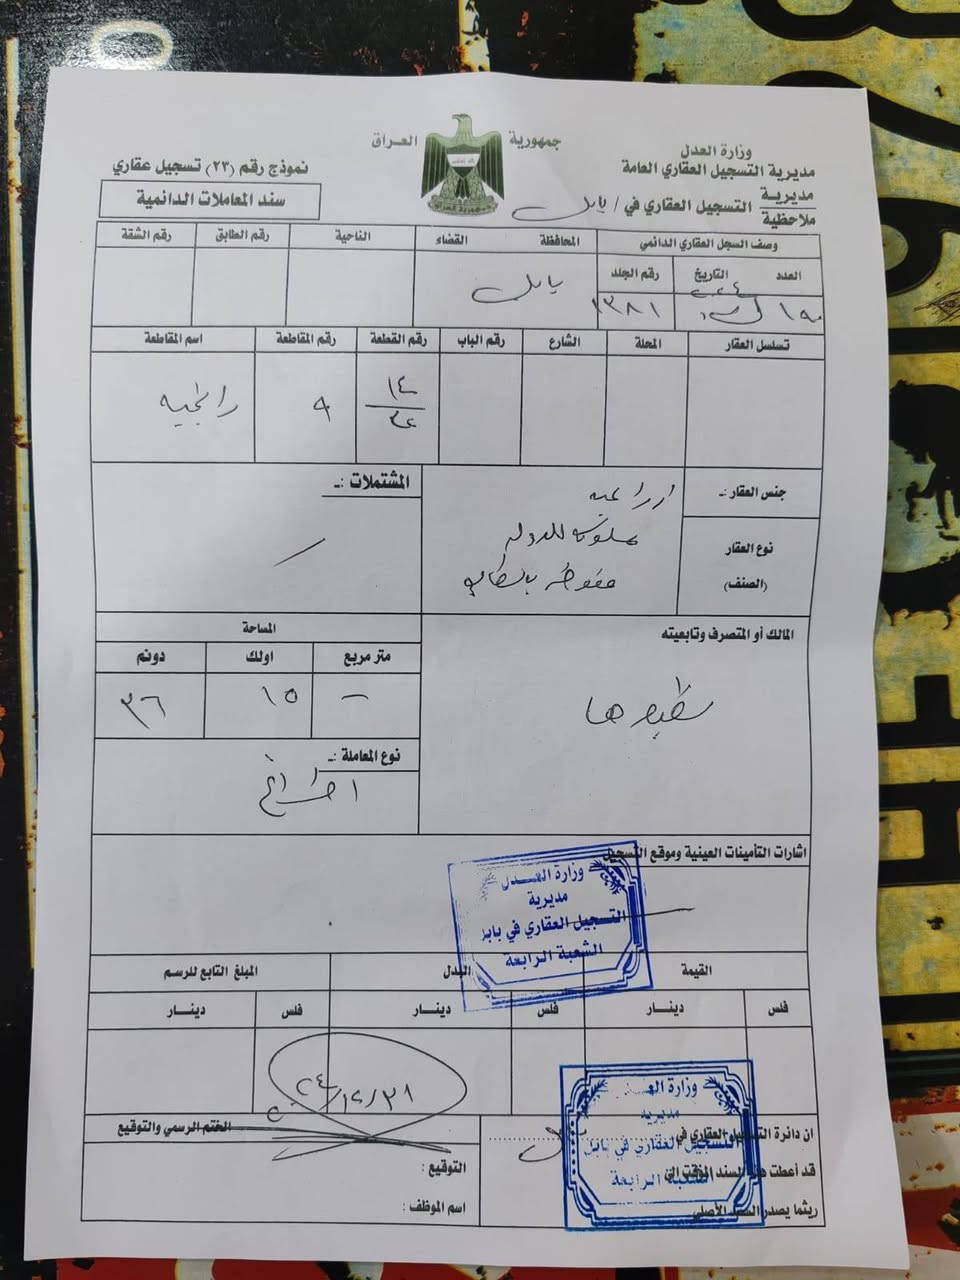 جمهورية العراق
وزارة العدل
مديرية التسجيل العقاري العامة
مديرية
ملاحظية
التسجيل العقاري في / بابل
نموذج رقم (٢٣) تسجيل عقاري
سند المعاملات الدائمية
وصف السجل العقاري الدائمي
المحافظة
القضاء
الناحية
رقم الطابق
رقم الشقة
العدد
التاريخ
رقم الجلد
١٣٨١
بابل
تسلسل العقار
المحلة
الشارع
رقم الباب
رقم القطعة
رقم المقاطعة
اسم المقاطعة
٩
جنس العقار :ـ
نوع العقار
(الصنف)
اراضيه
مملوكه للدوله
مفوضه بالطابو
المشتملات :ـ
المساحة
متر مربع
اولك
دونم
-
١٥
٣٦
المالك أو المتصرف وتابعيته
نوع المعاملة :ـ
اشارات التأمينات العينية وموقع التسجيل
وزارة العدل
مديرية
التسجيل العقاري في بابل
الشعبة الرابعة
القيمة
البدل
المبلغ التابع للرسم
فلس
دينـــار
فلس
دينـــار
فلس
دينـــار
٢٠٢٤/١٢/٣١
ان دائرة التسجيل العقاري في
قد أعطت هذا السند المؤقت الى
ريثما يصدر السند الأصلي
وزارة العدل
مديرية
التسجيل العقاري في بابل
الشعبة الرابعة
الختم الرسمي والتوقيع
التوقيع :
اسم الموظف :